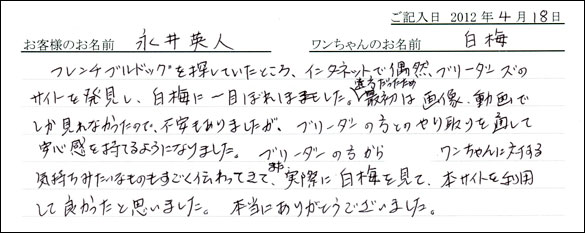 ご記入日 2012年4月18日
お客様のお名前 永井英人 ワンちゃんのお名前 白梅
フレンチブルドッグを探していたところ、インターネットで偶然、ブリーダーズの
サイトを発見し、白梅に一目ぼれしました。遠方だったため最初は画像、動画で
しか見れなかったので、不安もありましたが、ブリーダーの方とのやり取りを通して
安心感を持てるようになりました。ブリーダーの方から ワンちゃんに対する
気持ちみたいなものもすごく伝わってきて、また実際に白梅を見て、本サイトを利用
して良かったと思いました。本当にありがとうございました。